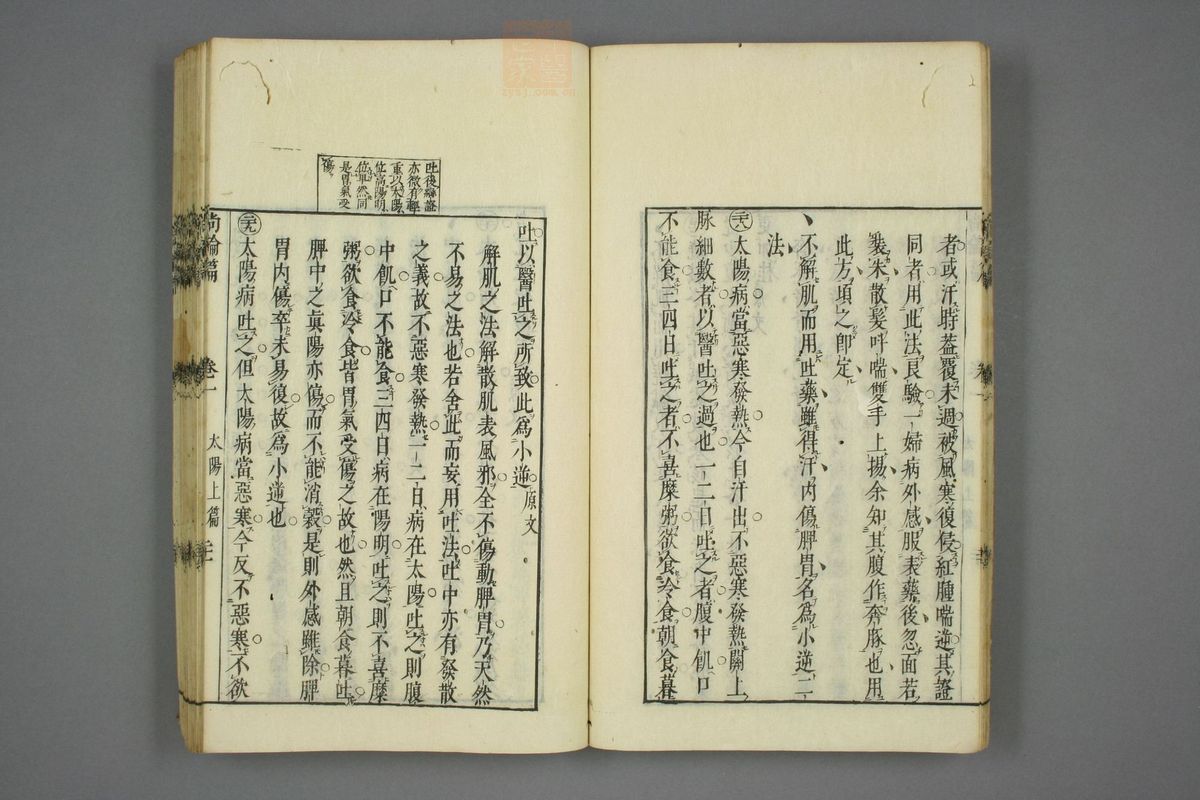 者或汗時蓋覆未週被風寒復侵紅腫喘逆其證
同者用此法良驗一婦病外感服表藥後忽面若
裝朱散髮呼喘雙手上揚余知其腹作奔豚也用
此方頃之卽定
不解肌而用吐藥雖得汗內傷脾胃名爲小逆二
法
二八太陽病當惡寒發熱今自汗出不惡寒發熱關上
脉細數者以醫吐之過也一二日吐之者腹中飢口
不能食三四日吐之者不喜糜粥欲食冷食朝食暮
吐後癥證
亦微有輕
重以太陽
位高陽明
位卑然同
是胃氣受
傷
吐以醫吐之所致此爲小逆原文
解肌之法解散肌表風邪全不傷動脾胃乃天然
不易之法也若舍此而妄用吐法吐中亦有發散
之義故不惡寒發熱一二日病在太陽吐之則腹
中飢口不能食三四日病在陽明吐之則不喜糜
粥欲食冷食皆胃氣受傷之故也然且朝食暮吐
脾中之眞陽亦傷而不能消穀是則外感雖除脾
胃內傷卒未易復故爲小逆也
二九太陽病吐之但太陽病當惡寒今反不惡寒不欲
尚論篇 卷一 太陽上篇
zysj.com.cn